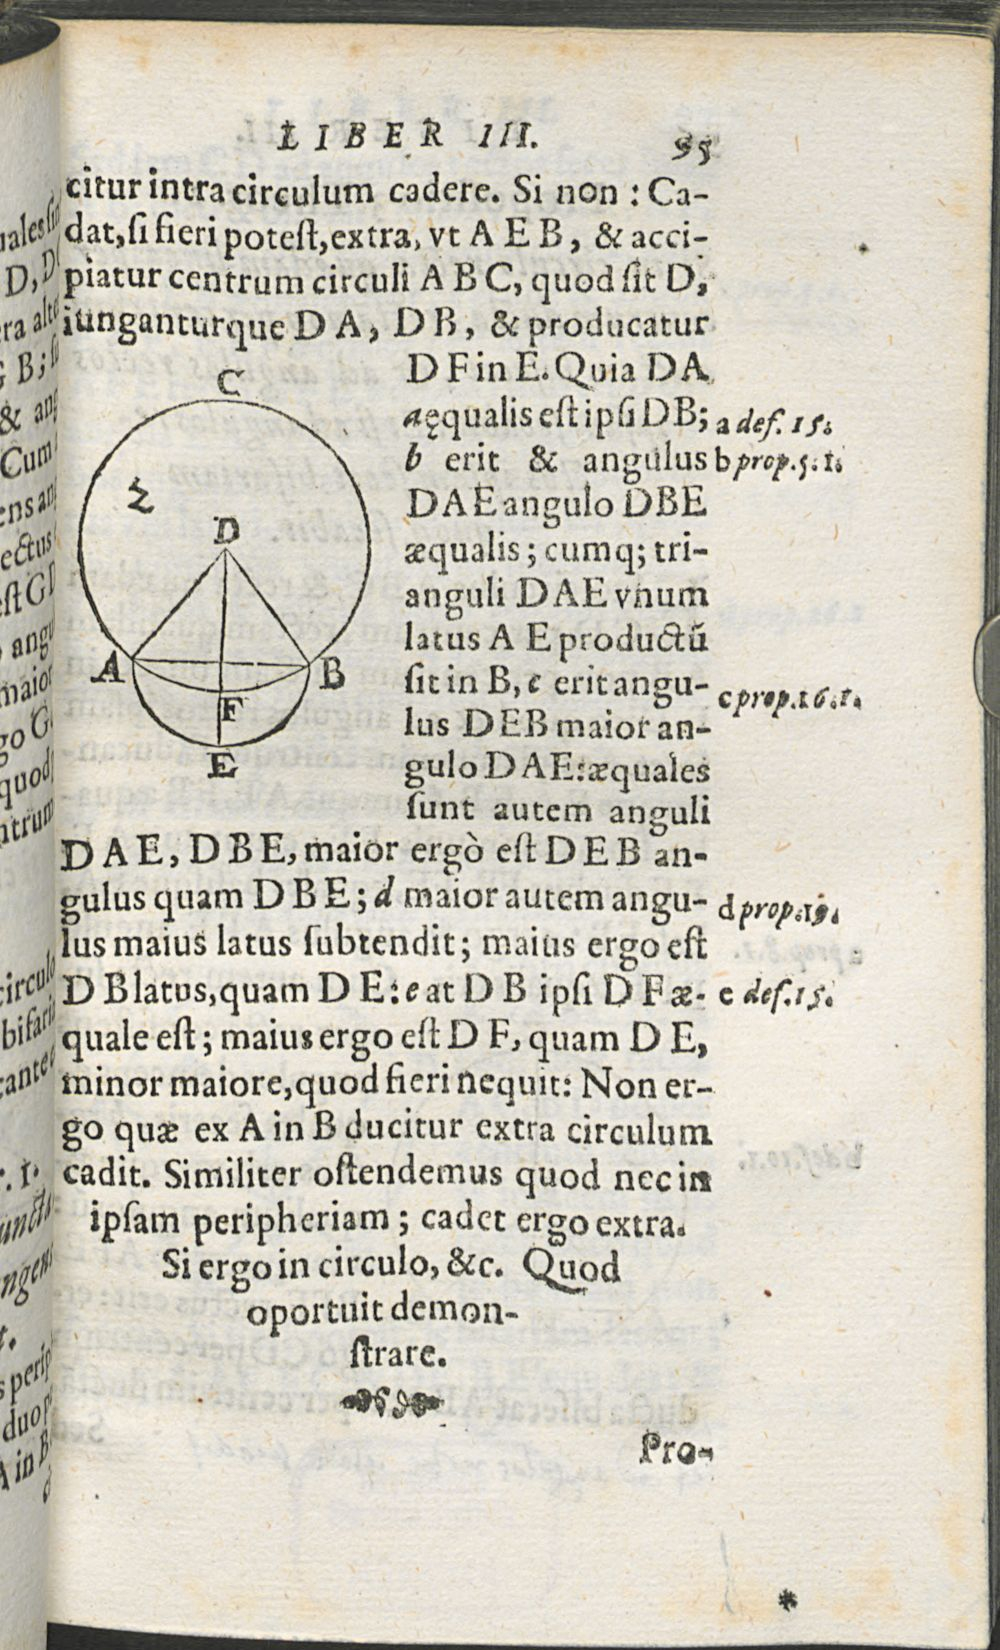 LIBER III. 95
citur intra circulum cadere. Si non : Ca-
dat, ſi fieri poteſt, extra, vt A E B, & acci-
piatur centrum circuli A B C, quod ſit D,
iunganturque D A, D B, & producatur
D F in E. Quia D A
a ęqualis eſt ipſi DB; a def. 15.
b erit & angulus b prop. 5. 1.
DAE angulo DBE
æqualis; cumq; tri-
anguli DAE vnum
latus A E productũ
ſit in B, c erit angu- c prop. 16. 1.
lus DEB maior an-
gulo DAE: æquales
ſunt autem anguli
C
2
D
A
B
F
E
DAE, DBE, maior ergò eſt DEB an-
gulus quam DBE; d maior autem angu- d prop. 19.
lus maius latus ſubtendit; maius ergo eſt
D B latus, quam D E: e at D B ipſi D F æ- e def. 15.
quale eſt; maius ergo eſt D F, quam D E,
minor maiore, quod fieri nequit: Non er-
go quæ ex A in B ducitur extra circulum
cadit. Similiter oſtendemus quod nec in
ipſam peripheriam; cadet ergo extra.
Si ergo in circulo, &c. Quod
oportuit demon-
ſtrare.
Pro-
*